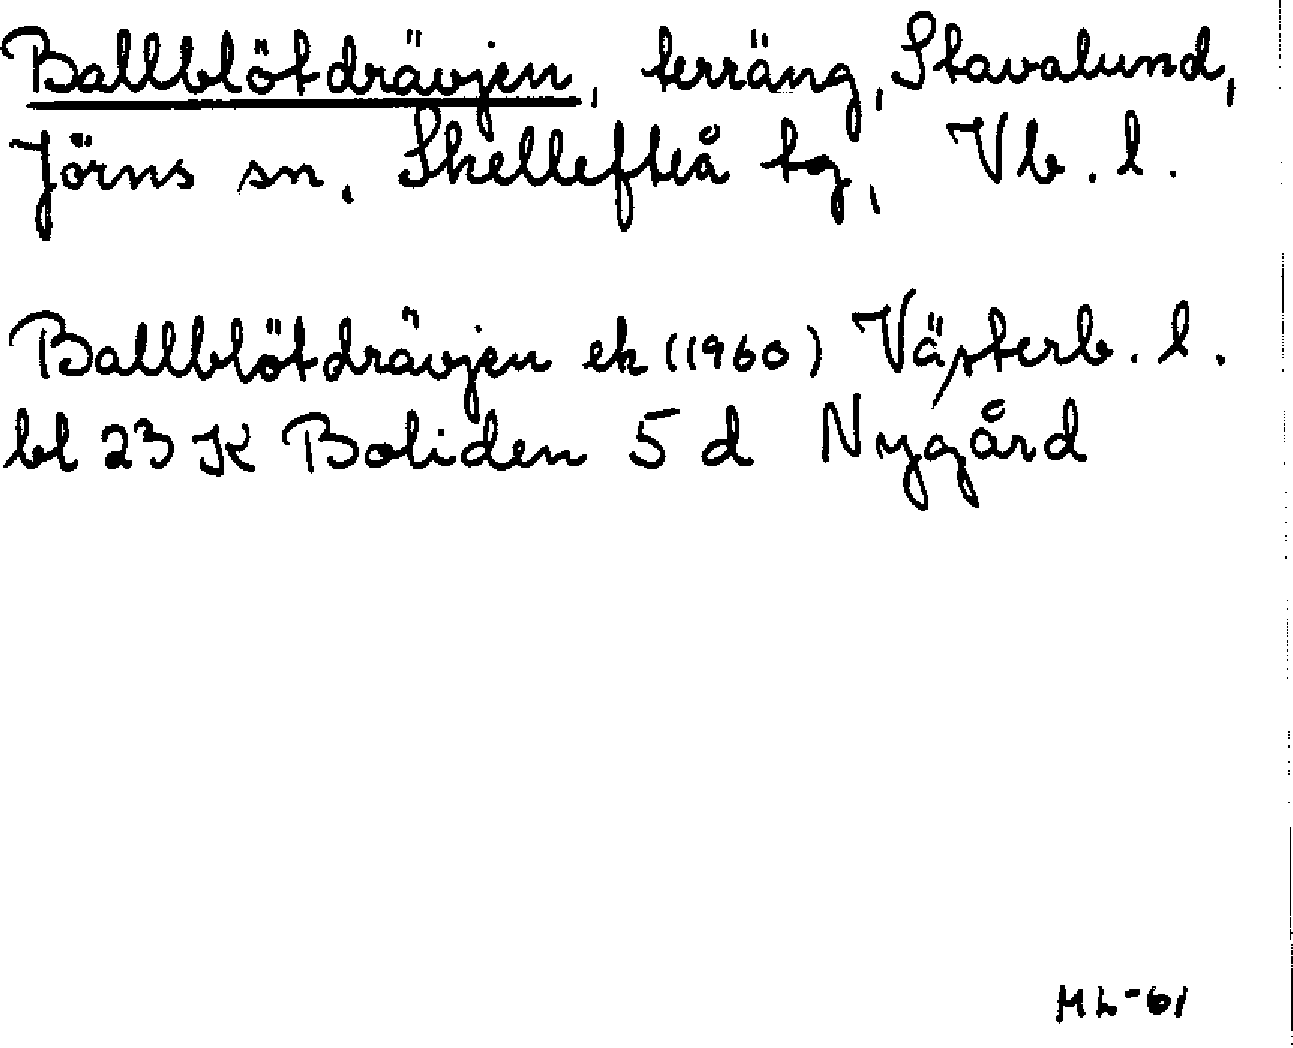 Ballblötdrävjen, terräng, Stavalund,
Jörns sn, Skellefteå tg, Vb. l.
Ballblötdrävjen ek (1960) Västerb. l.
bl 23 K Boliden 5 d Nygård
ML-61